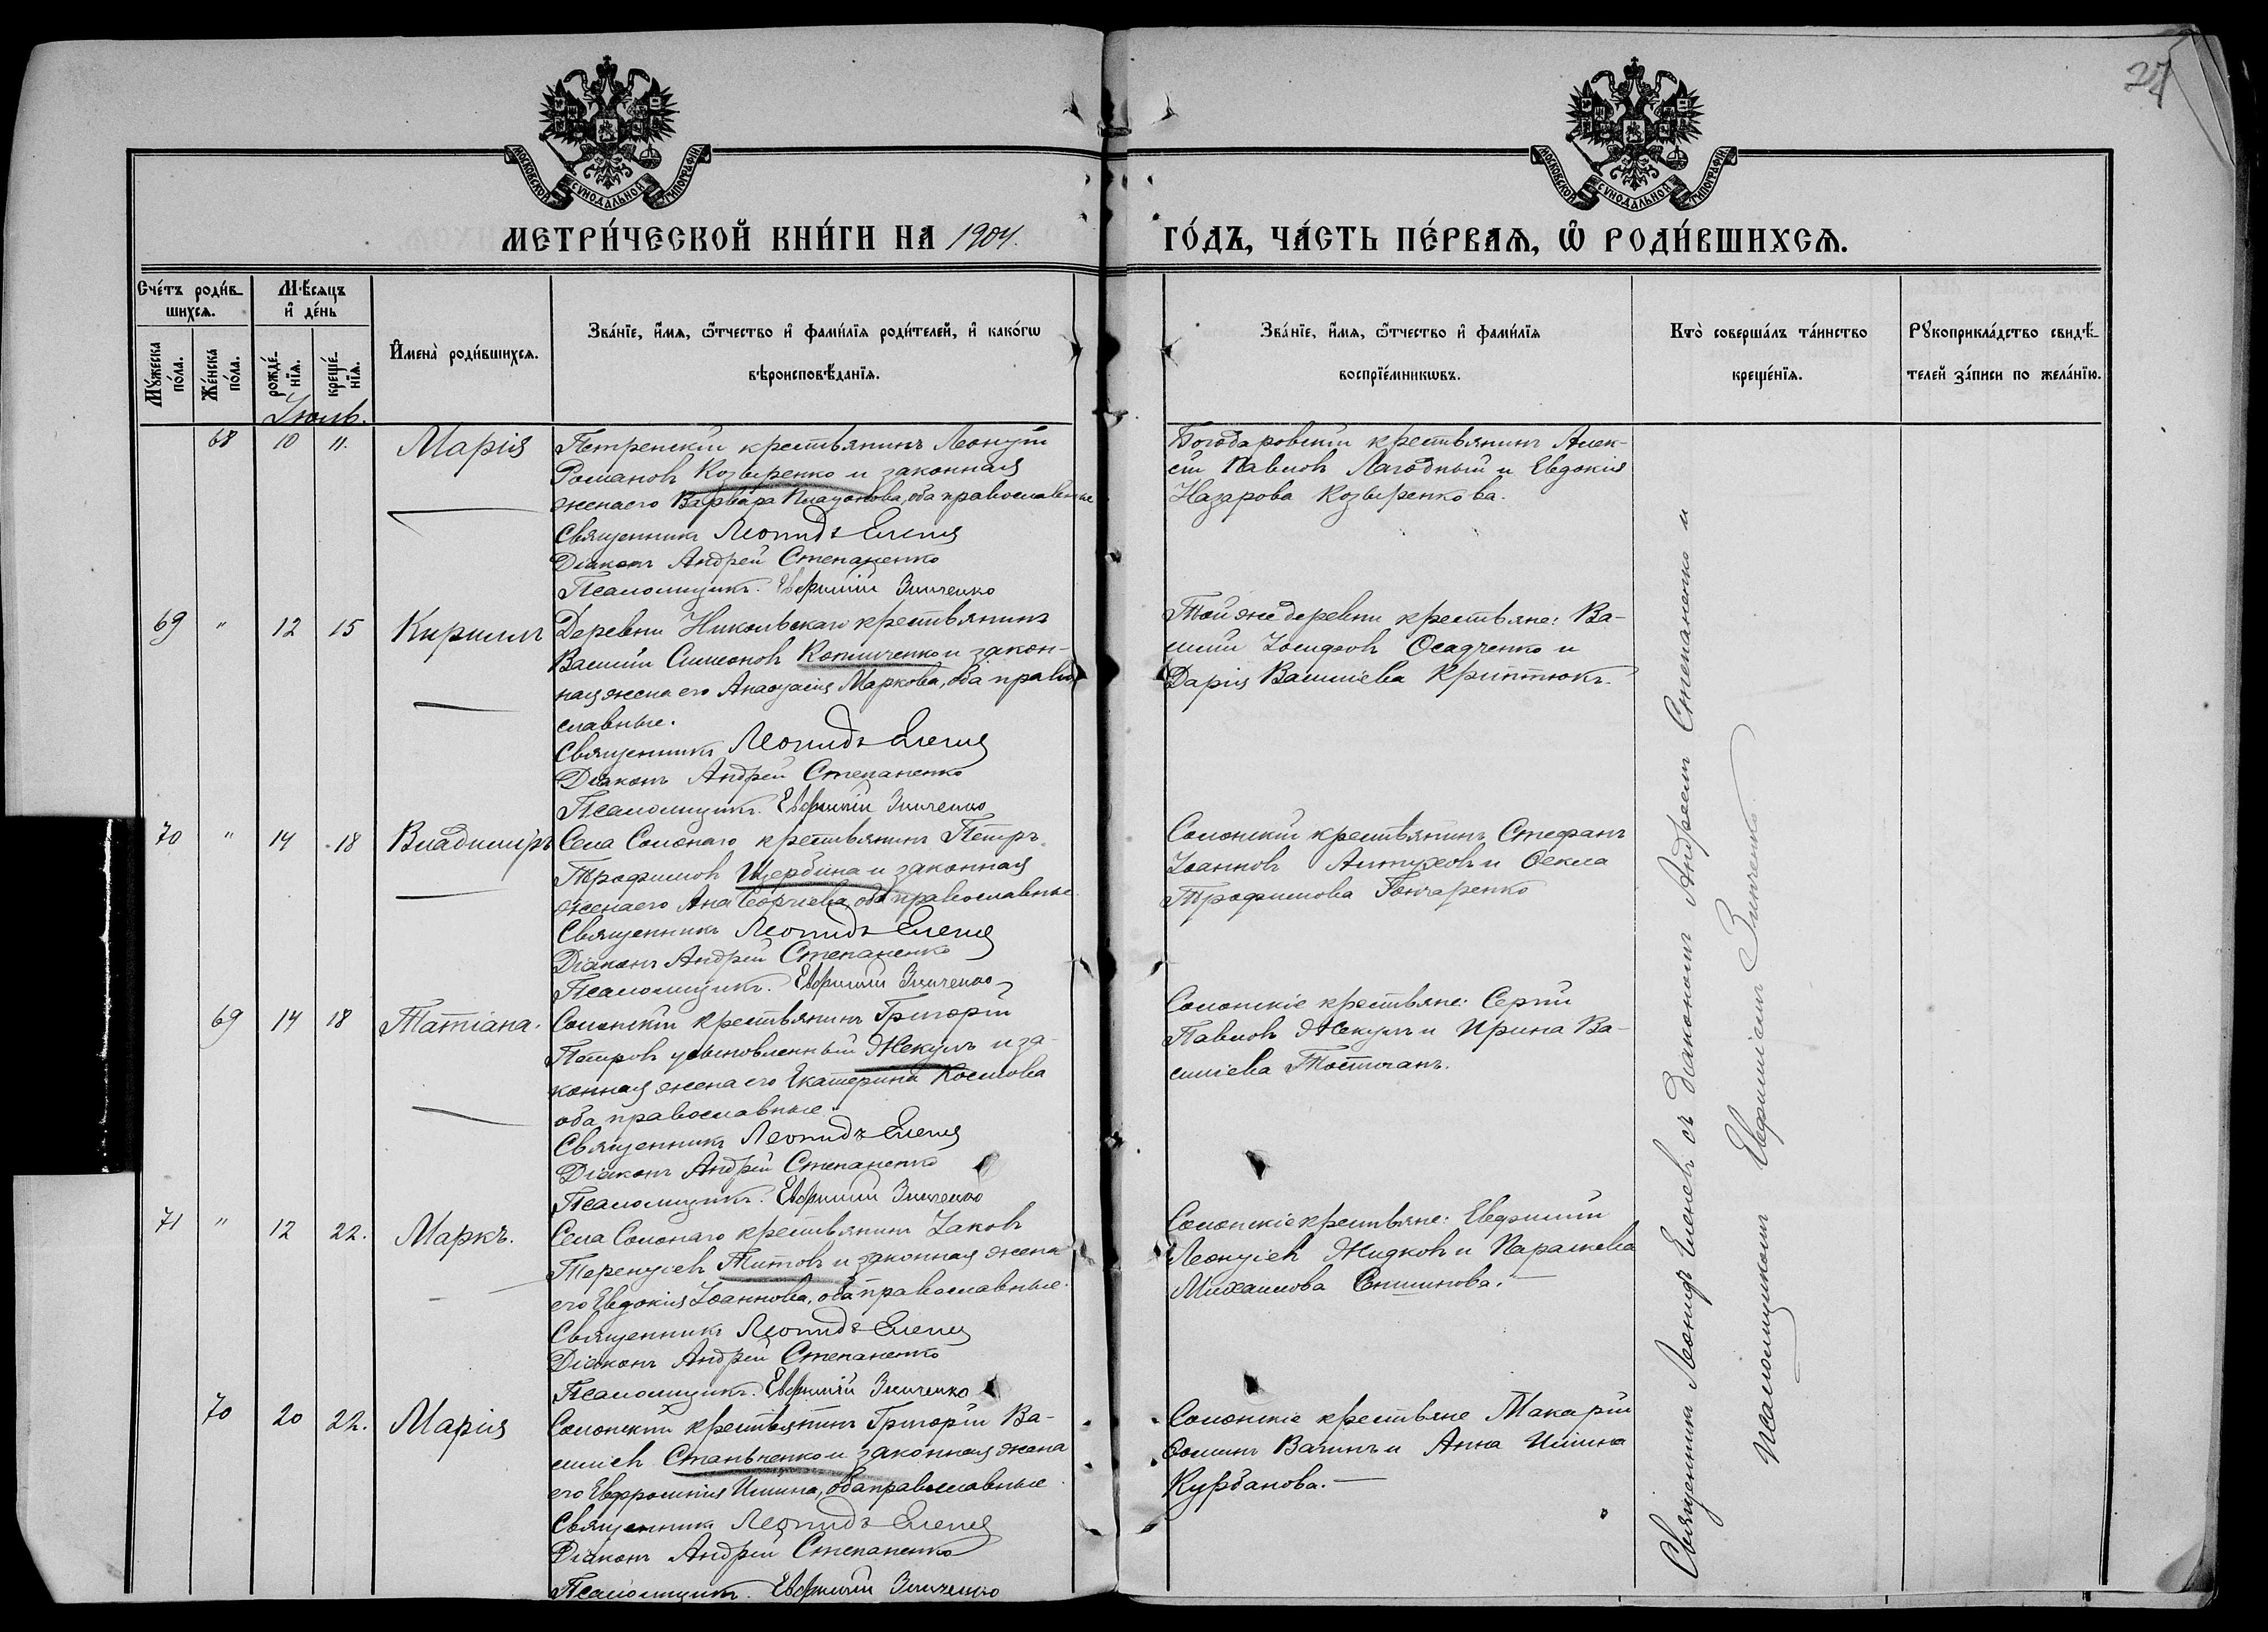 27
МОСКОВСКОЙ СѴНОДАЛЬНОЙ ТИПОГРАФІИ.
МОСКОВСКОЙ СѴНОДАЛЬНОЙ ТИПОГРАФІИ.
МЕТРИ́ЧЕСКОЙ КНИ́ГИ НА 1904.
ГО́ДЪ, ЧА́СТЬ ПЕ́РВАѦ, Ѡ҆ РОДИ́ВШИХСѦ.
Сче́тъ роди́в-
шихсѧ.
Мꙋ́жеска по́ла.
Же́нска по́ла.
Мѣ́сѧцъ
и҆ де́нь
рожде́-
нїѧ.
креще́-
нїѧ.
И҆мена̀ роди́вшихсѧ.
Зва́нїе, и҆́мѧ, ѻ҆́тчество и҆ фами́лїѧ роди́телей, и҆ како́гѡ
вѣроисповѣ́данїѧ.
Зва́нїе, и҆́мѧ, ѻ҆́тчество и҆ фами́лїѧ
воспрїе́мникѡвъ.
Кто̀ соверша́лъ та́инство
креще́нїѧ.
Рꙋкоприкла́дство свидѣ́-
телей за́писи по жела́нїю.
Іюль.
68 10 11. Марія
Петрепскій крестьянинъ Леонтій
Романовъ Козыренко и законная
жена его Варвара Платонова, оба православные
Священникъ Леонидъ Еленев
Діаконъ Андрей Степаненко
Псаломщикъ. Евфимій Зинченко
Богодаровскій крестьянинъ Алек-
сій Павловъ Лагодный и Евдокія
Назарова Козыренкова.
69 " 12 15 Кириллъ
Деревни Никольскаго крестьянинъ
Василій Симеоновъ Копиченко и закон-
ная жена его Анастасія Маркова, оба право
славные.
Священникъ Леонидъ Еленев
Діаконъ Андрей Степаненко
Псаломщикъ. Евфимій Зинченко
Той же деревни крестьяне: Ва-
силій Іосифовъ Осадченко и
Дарія Василіева Криптюкъ.
70 " 14 18 Владиміръ
Села Солонаго крестьянинъ Петръ
Трофимовъ Щербина и законная
жена его Анна Георгіева, оба православные
Священникъ Леонидъ Еленев
Діаконъ Андрей Степаненко
Псаломщикъ. Евфимій Зинченко
Солонскій крестьянинъ Стефанъ
Іоанновъ Алтуховъ и Ѳекла
Трофимова Гончаренко
69 14 18 Татіана.
Солонскій крестьянинъ Григорій
Петровъ усыновленный Жекулъ и за-
конная жена его Екатерина Космова
оба православные
Священникъ Леонидъ Еленев
Діаконъ Андрей Степаненко
Псаломщикъ. Евфимій Зинченко
Солонскіе крестьяне: Сергій
Павловъ Жекулъ и Ирина Ва-
силіева
71 " 12 22. Маркъ.
Села Солонаго крестьянинъ Іаковъ
Терентіевъ Титовъ и законная жена
его Евдокія Іоаннова, оба православные.
Священникъ Леонидъ Еленев
Діаконъ Андрей Степаненко
Псаломщикъ. Евфимій Зинченко
Солонскіе крестьяне: Евфимій
Леонтіевъ Жидковъ и Параскева
Михаилова
70 20 22. Марія
Солонскій крестьянинъ Григорій Ва-
силіевъ Станьченко и законная жена
его Евфросинія Ильина, оба православные
Священникъ Леонидъ Еленев
Діаконъ Андрей Степаненко
Псаломщикъ. Евфимій Зинченко
Солонскіе крестьяне Макарій
Ѳоминъ Вагинъ и Анна Ильина
Курбанова.
Священникъ Леонидъ Еленевъ съ діакономъ Андреемъ Степаненко и
псаломщикомъ Евфиміемъ Зинченко